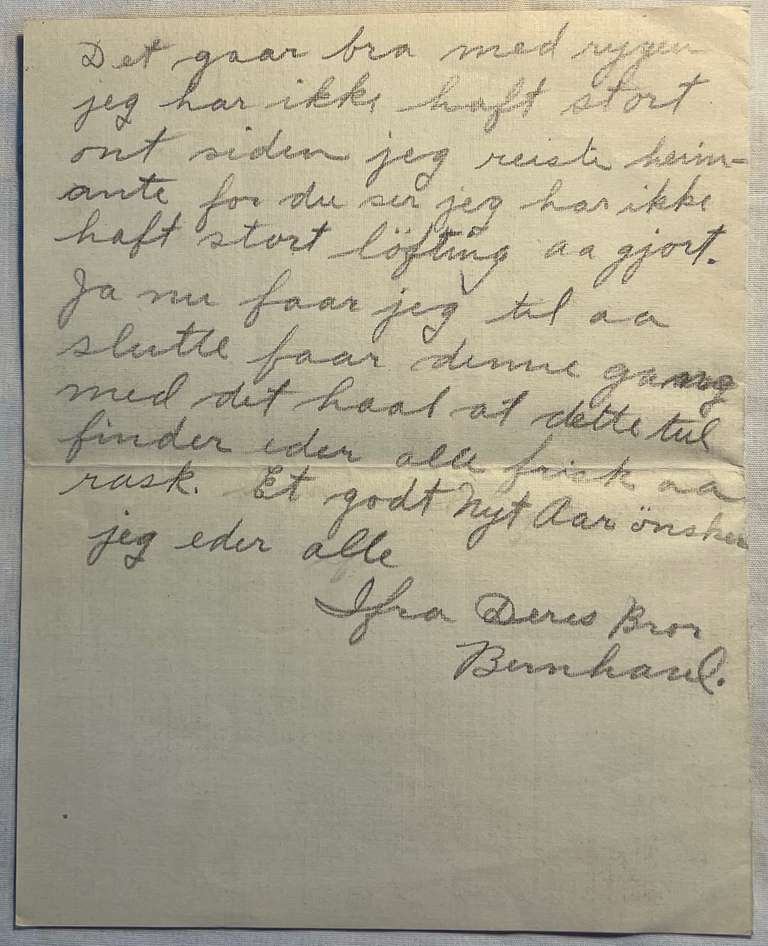 Det gaar bra med rygen
jeg har ikke haft stort
ont siden jeg reiste heim-
ante for du ser jeg har ikke
haft stort löfting aa gjort.
Ja nu faar jeg til aa
slutte faar denne gang
med det haab at dette til
finder eder alle frisk aa
rask. Et godt Nyt Aar önsker
jeg eder alle
Ifra Deres Bror
Bernhard.